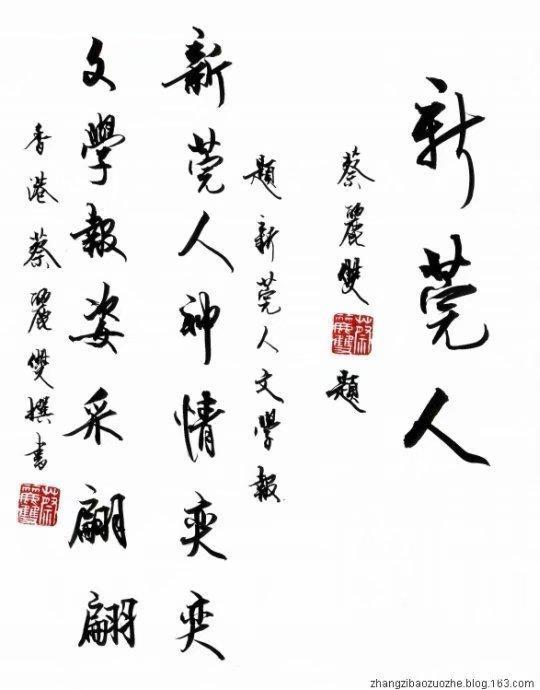 新莞人
蔡麗雙題
題新莞人文學報
新莞人神情奕奕
文學報姿采翩翩
香港蔡麗雙撰書
蔡麗雙
蔡麗雙
zhangzibaozuozhe.blog.163.com